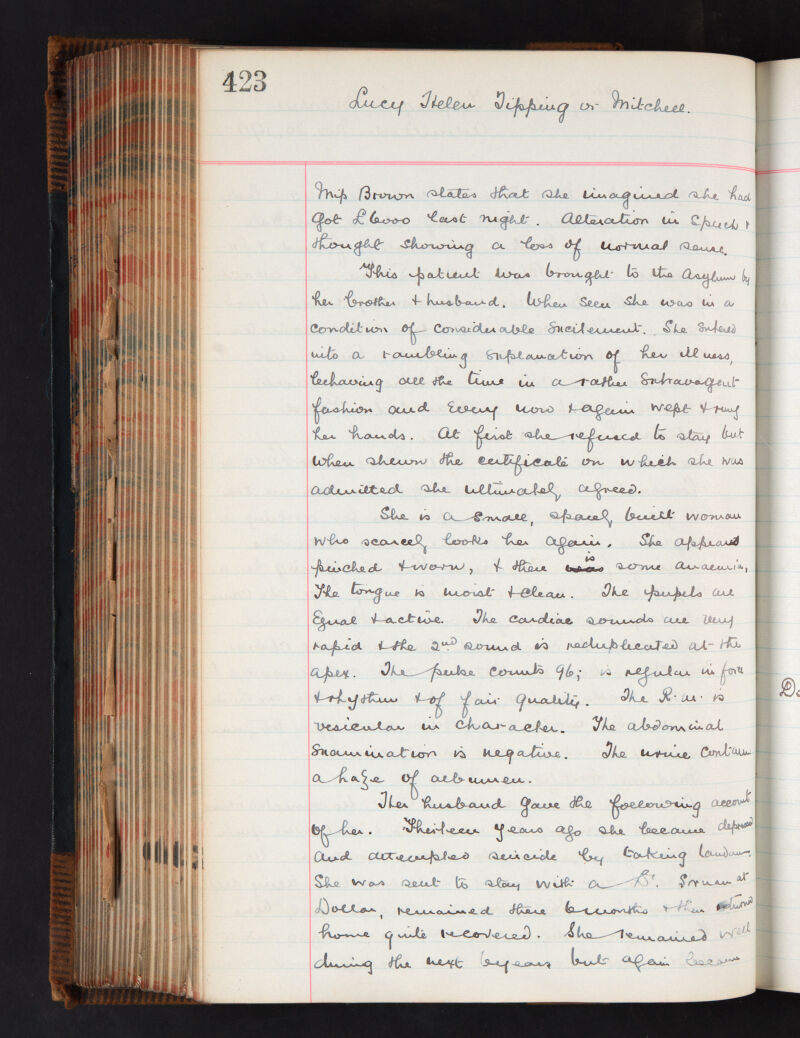 423
Lucy Helen Tipping or Mitchell.
Miss Brown states that she imagined she had
got £6000 last night. Alteration in Speech &
thought showing a loss of normal sense.
This patient was brought to the Asylum by
her brother & husband. When seen she was in a
condition of considerable excitement. She entered
into a rambling explanation of her illness,
behaving all the time in a rather extravagent
fashion and every now & again wept & rung
her hands. At first she refused to stay but
when shewn the certificate on which she was
admitted she ultimately agreed.
She is a small, sparely built woman
who scarcely looks her age. She appears
pinched & worn, & there is some anaemia,
The tongue is moist & clean. The pupils are
Equal & active. The cardiac sounds are very
rapid & the 2nd sound is reduplicated at the
apex. The pulse counts 96; is regular in form
& rhythm & of fair quality. The R.m. is
vesicular in character. The abdominal
Examination is negative. The urine contains
a haze of albumen.
Her husband gave the following account
of her. Thirteen years ago she became depressed
and attempted suicide by taking laudanum.
She was sent to stay with a Dr. at
Dollar, remained there 6 months & then returned
home quite recovered. She remained well
during the next 6 years but again became